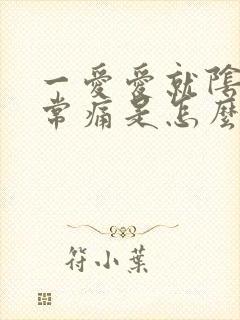 一愛愛就陰
常痛是怎麼
符小葉